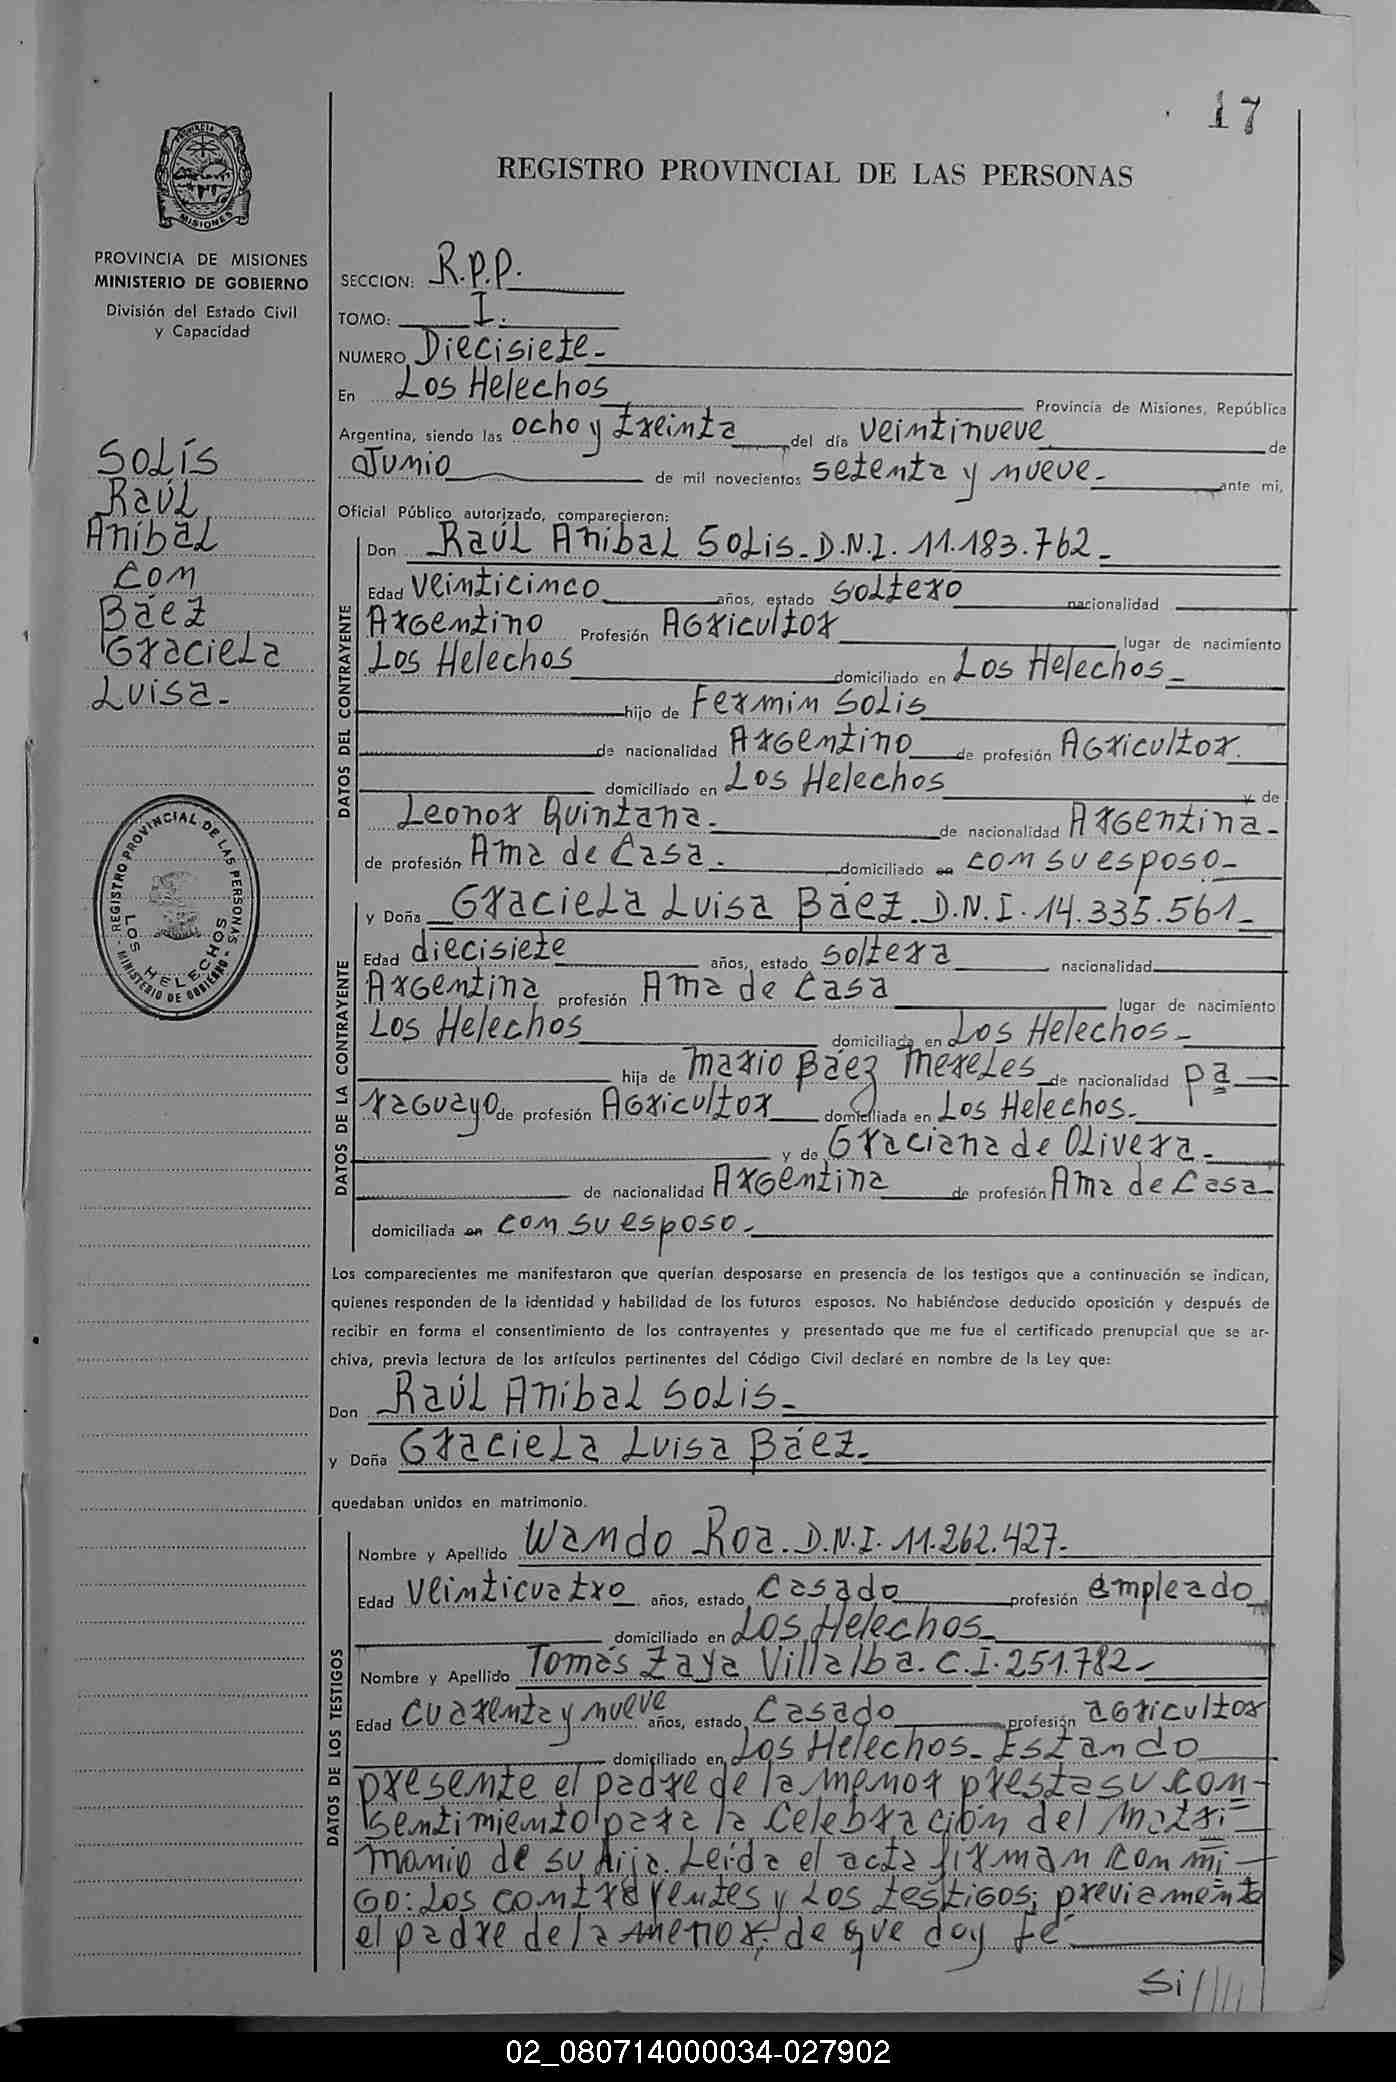 17
REGISTRO PROVINCIAL DE LAS PERSONAS
PROVINCIA
MISIONES
PROVINCIA DE MISIONES
MINISTERIO DE GOBIERNO
División del Estado Civil
y Capacidad
SOLÍS
RaúL
AníbaL
con
Báez
GracieLa
Luisa.-
REGISTRO PROVINCIAL DE LAS PERSONAS
LOS HELECHOS
MINISTERIO DE GOBIERNO
SECCION: R.P.P.
TOMO: I.
NUMERO Diecisiete-
En Los Helechos Provincia de Misiones, República
Argentina, siendo las ocho y treinta del día veintinueve de
Junio de mil novecientos setenta y nueve.- ante mi,
Oficial Público autorizado, comparecieron:
DATOS DEL CONTRAYENTE
Don RaúL AníbaL SoLis- D.N.I. 11.183.762-
Edad veinticinco años, estado soLtero nacionalidad
Argentino Profesión Agricultor lugar de nacimiento
Los Helechos domiciliado en Los Helechos-
hijo de Fermin SoLis
de nacionalidad Argentino de profesión Agricultor.
domiciliado en Los Helechos y de
Leonor Quintana.- de nacionalidad Argentina-
de profesión Ama de Casa. domiciliado en con su esposo-
DATOS DE LA CONTRAYENTE
y Doña GracieLa Luisa Báez. D.N.I. 14.335.561-
Edad diecisiete años, estado soltera nacionalidad
Argentina profesión Ama de Casa lugar de nacimiento
Los Helechos domiciliada en Los Helechos-
hija de Mario Báez MereLes de nacionalidad pa-
raguayo de profesión Agricultor domiciliada en Los Helechos.-
y de Graciana de OLivera.-
de nacionalidad Argentina de profesión Ama de Casa-
domiciliada en con su esposo.-
Los comparecientes me manifestaron que querían desposarse en presencia de los testigos que a continuación se indican,
quienes responden de la identidad y habilidad de los futuros esposos. No habiéndose deducido oposición y después de
recibir en forma el consentimiento de los contrayentes y presentado que me fue el certificado prenupcial que se ar-
chiva, previa lectura de los artículos pertinentes del Código Civil declaré en nombre de la Ley que:
Don RaúL AnibaL SoLis-
y Doña GracieLa Luisa Báez.-
quedaban unidos en matrimonio.
DATOS DE LOS TESTIGOS
Nombre y Apellido Wando Roa. D.N.I. 11.262.427-
Edad veinticuatro años, estado Casado profesión empleado
domiciliado en Los Helechos-
Nombre y Apellido Tomás Zaya Villalba. C.I. 251.782-
Edad cuarenta y nueve años, estado Casado profesión agricultor
domiciliado en Los Helechos- Estando
presente el padre de la menor presta su con-
sentimiento para la celebración del matri=
monio de su hija. Leída el acta firman con mi-
go: Los contrayentes y Los testigos; previamente
el padre de la menor, de que doy fé-
Si/////
02_080714000034-027902